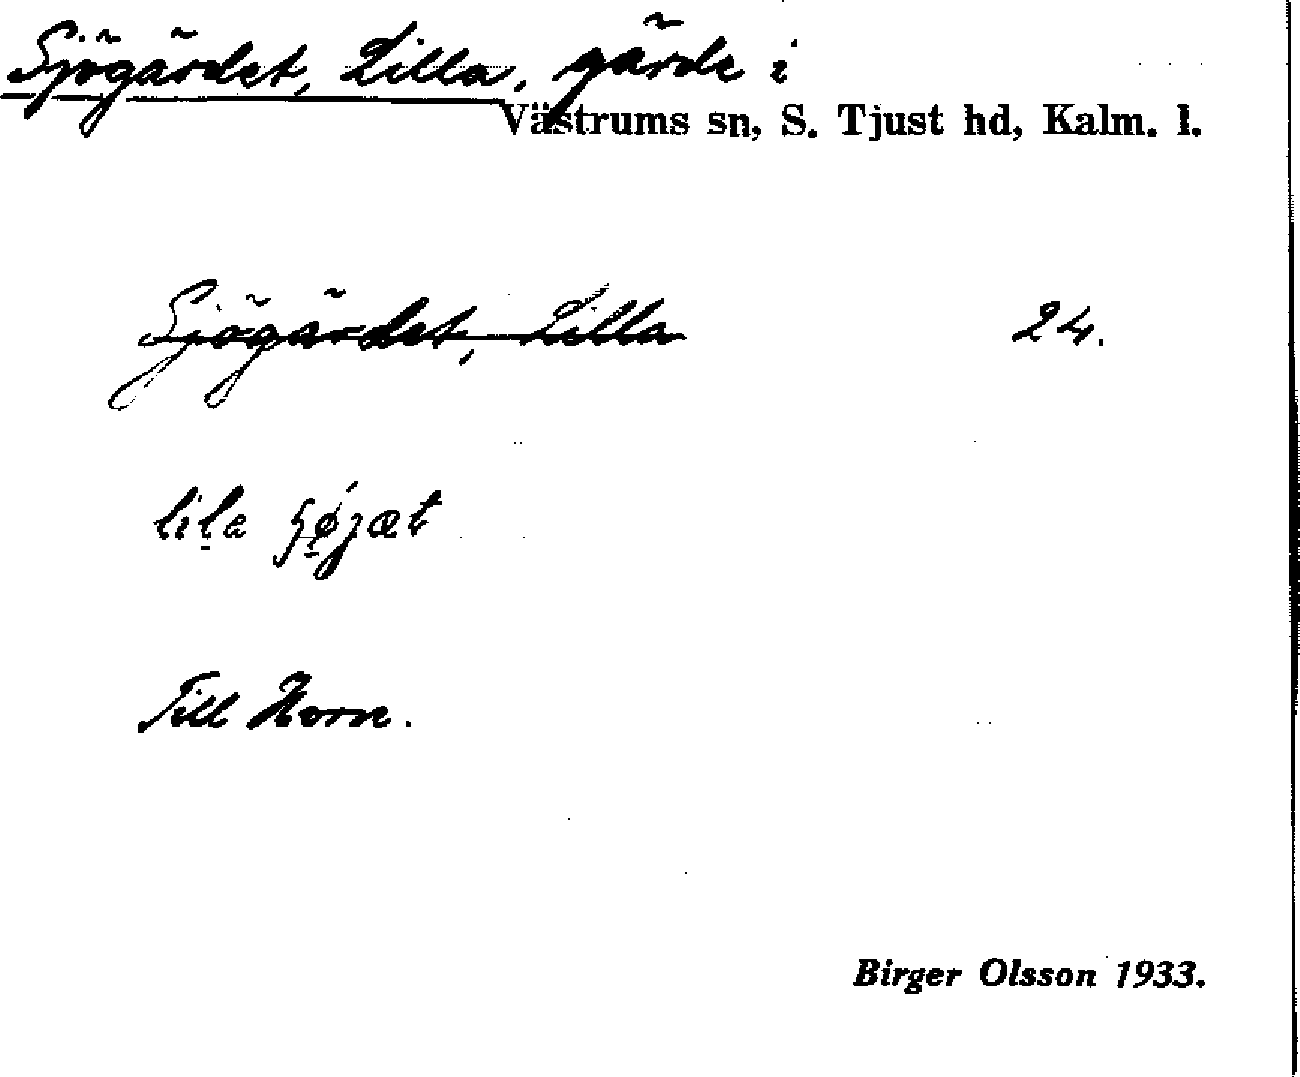 Sjögärdet, Lilla, gärde i
Västrums sn, S. Tjust hd, Kalm. l.
Sjögärdet, Lilla 24.
lila
Till Horn.
Birger Olsson 1933.